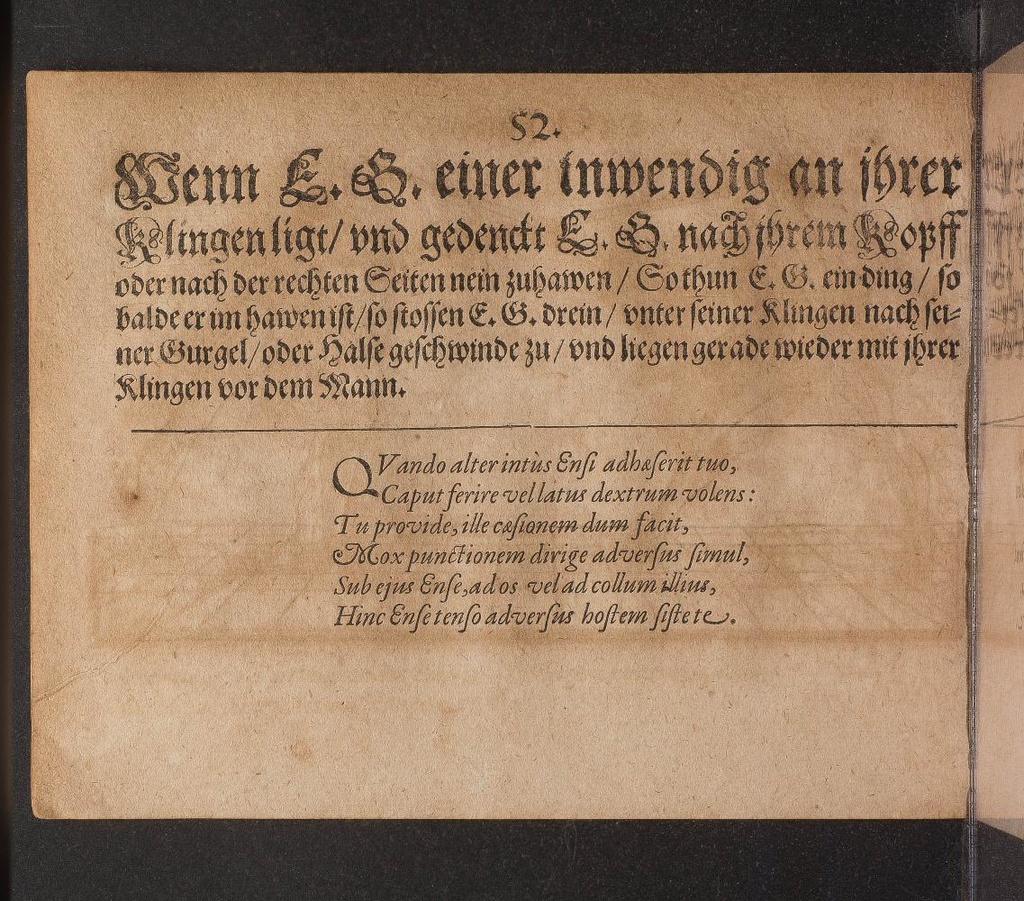 52.
Wenn E. G. einer inwendig an jhrer
Klingen ligt/ vnd gedenckt E. G. nach jhrem Kopff
oder nach der rechten Seiten nein zuhawen / So thun E. G. ein ding / so
balde er im hawen ist/ so stossen E. G. drein / vnter seiner Klingen nach sei-
ner Gurgel/ oder Halse geschwinde zu / vnd liegen gerade wieder mit jhrer
Klingen vor dem Mann.
QVando alter intùs Ensi adhæserit tuo,
Caput ferire vel latus dextrum volens:
Tu provide, ille cæsionem dum facit,
Mox punctionem dirige adversus simul,
Sub ejus Ense, ad os vel ad collum illius,
Hinc Ense tenso adversus hostem siste te.